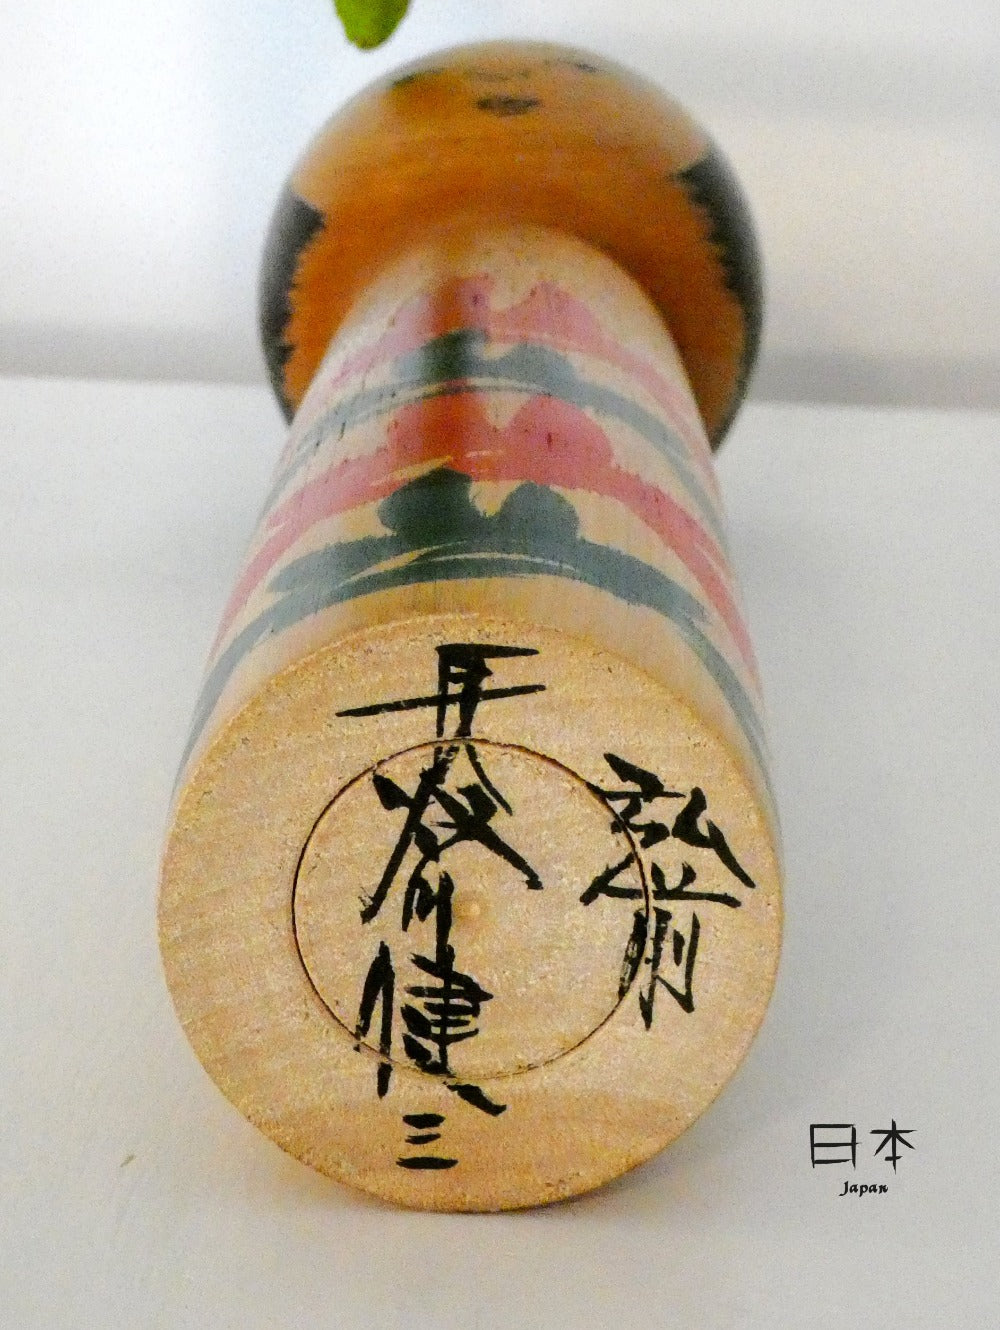 弘前
長谷川健三
日本
Japan